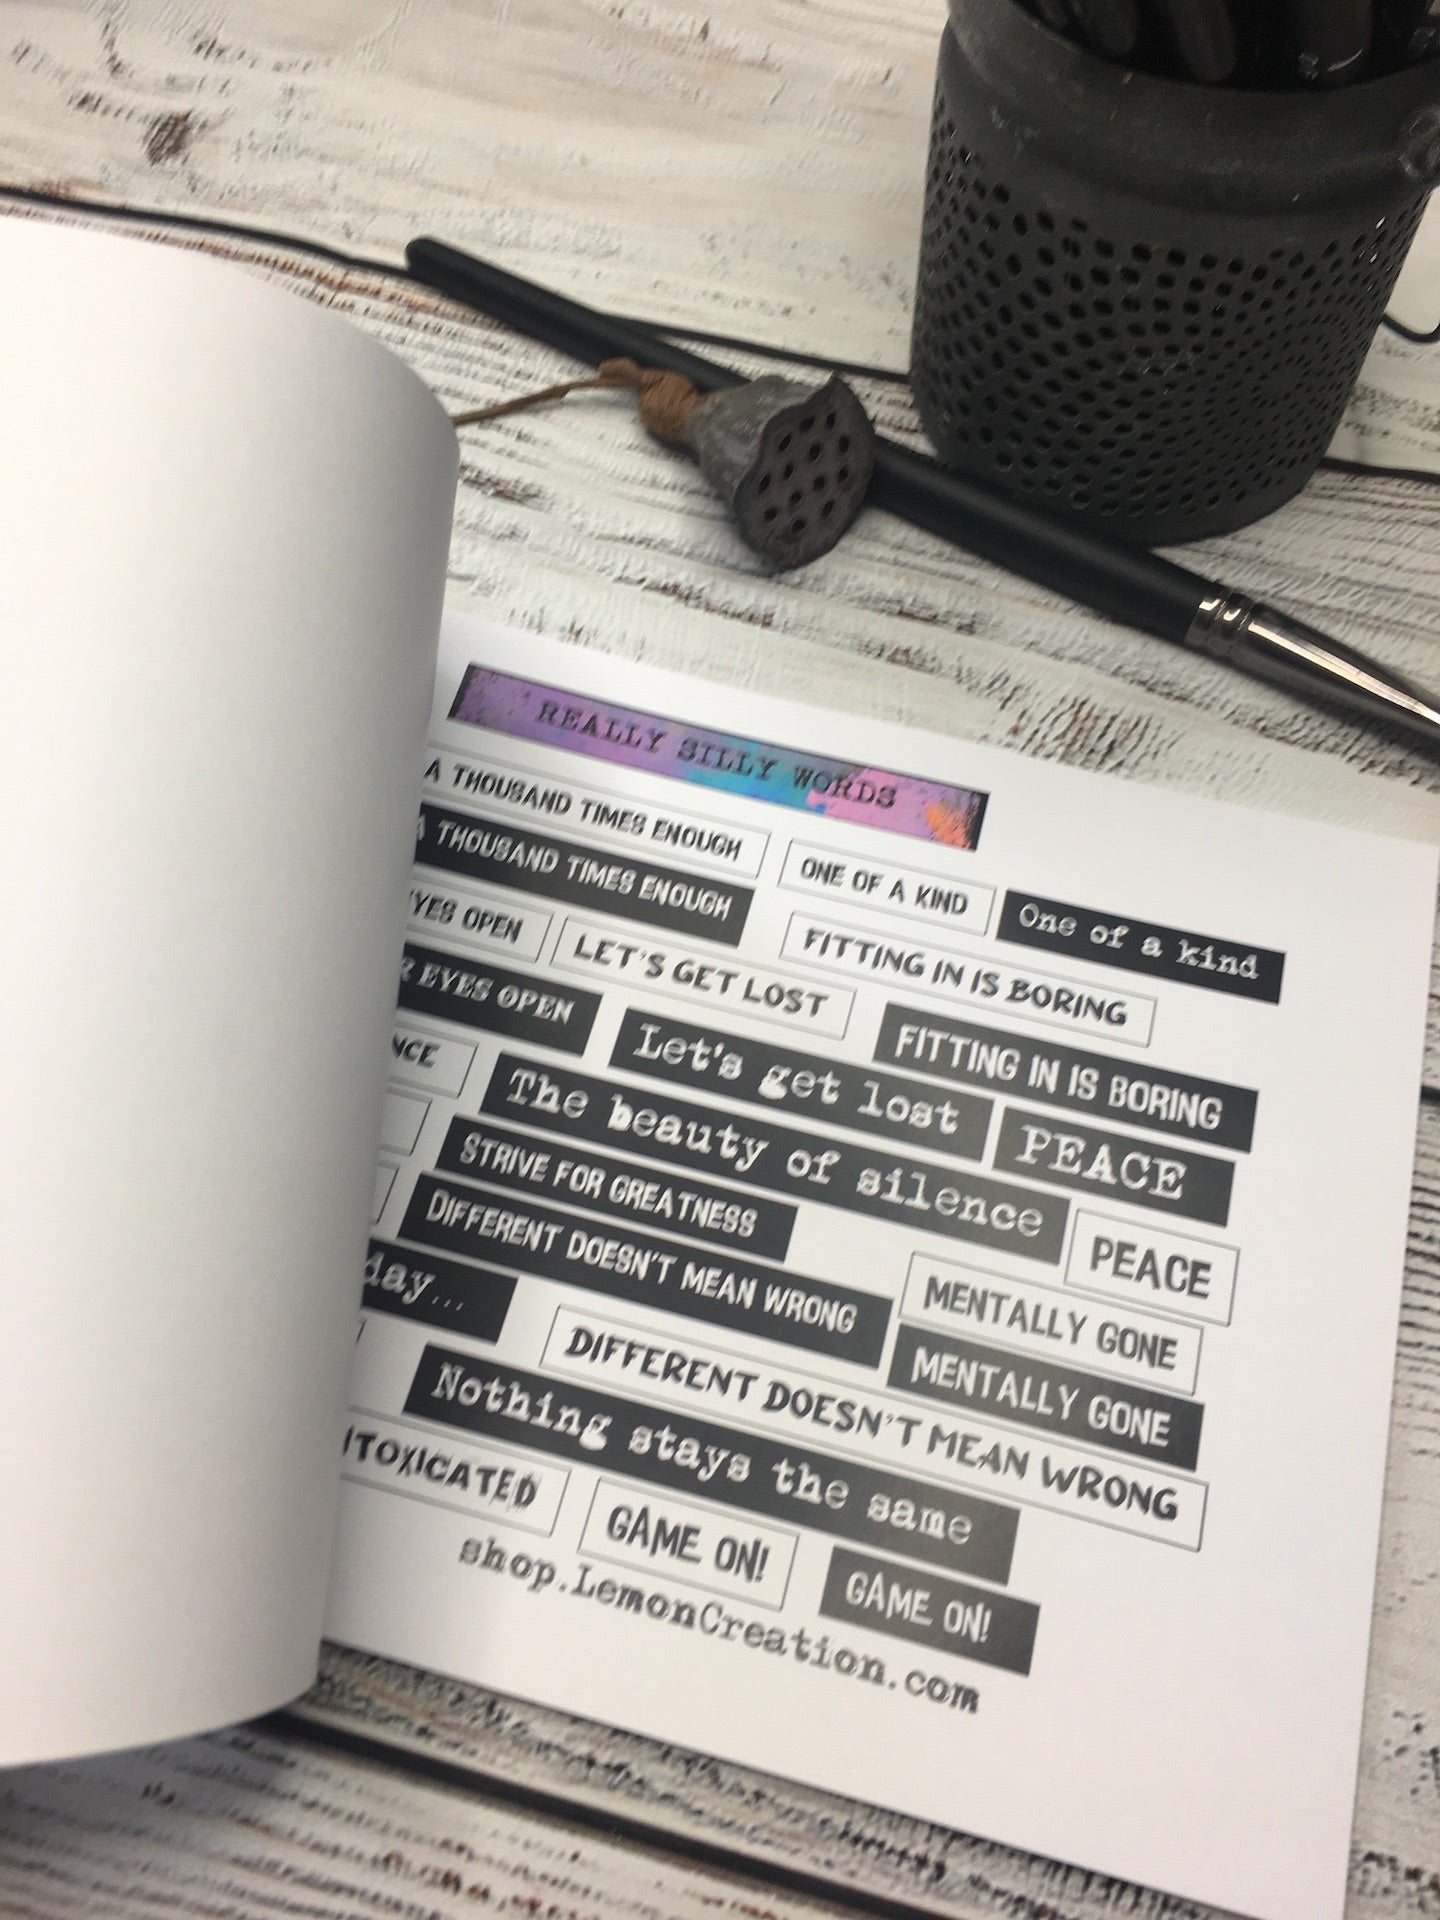 REALLY SILLY WORDS
A THOUSAND TIMES ENOUGH
ONE OF A KIND
One of a kind
THOUSAND TIMES ENOUGH
FITTING IN IS BORING
EYES OPEN
LET'S GET LOST
FITTING IN IS BORING
EYES OPEN
Let's get lost
PEACE
The beauty of silence
PEACE
STRIVE FOR GREATNESS
MENTALLY GONE
DIFFERENT DOESN'T MEAN WRONG
MENTALLY GONE
day...
DIFFERENT DOESN'T MEAN WRONG
Nothing stays the same
TOXICATED
GAME ON!
GAME ON!
shop.LemonCreation.com